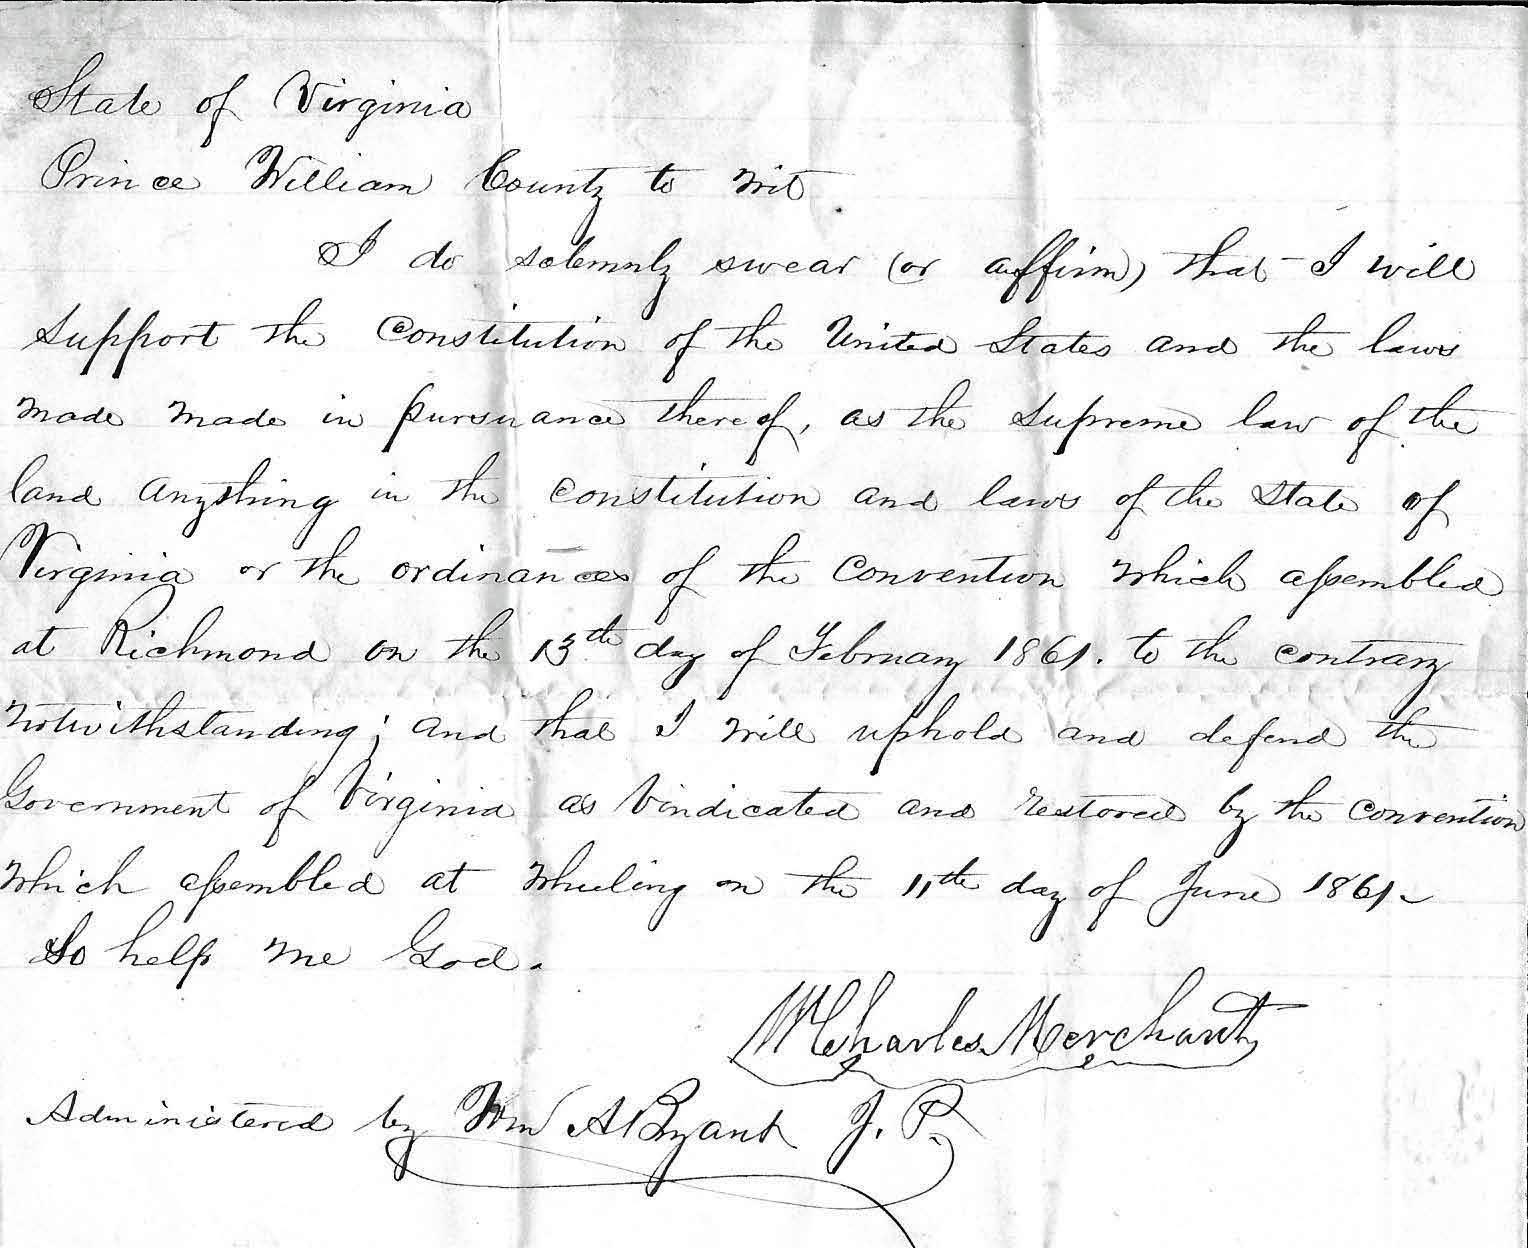 State of Virginia
Prince William County to wit
I do solemnly swear (or affirm) that I will
support the Constitution of the United States and the laws
made made in pursuance thereof, as the Supreme law of the
land anything in the Constitution and laws of the State of
Virginia or the ordinances of the Convention which assembled
at Richmond on the 13th day of February 1861. to the contrary
notwithstanding; and that I will uphold and defend the
Government of Virginia as Vindicated and restored by the Convention
which assembled at Wheeling on the 11th day of June 1861.
So help me God.
W Charles Merchant
Administered by Wm A Bryant J. P.